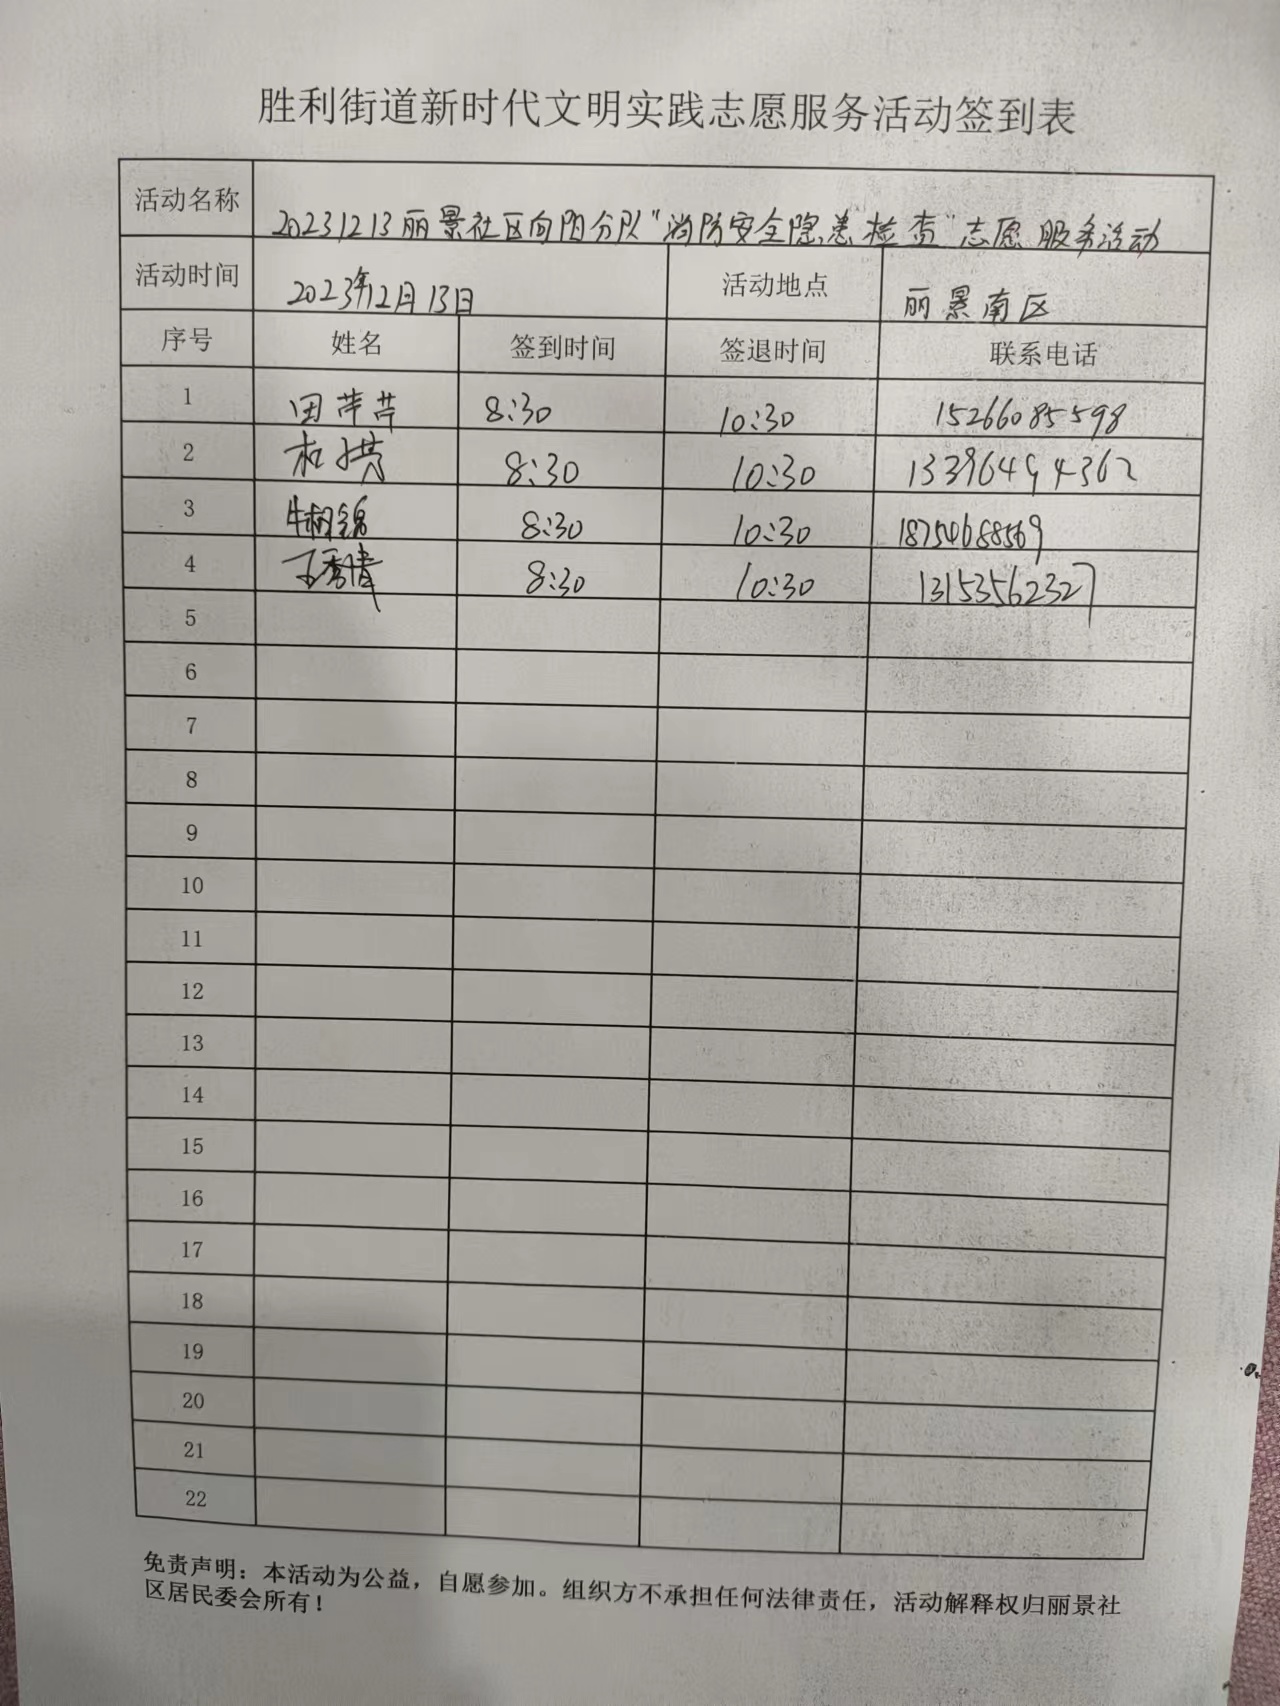 胜利街道新时代文明实践志愿服务活动签到表
活动名称 20231213丽景社区向阳分队"消防安全隐患检查"志愿服务活动
活动时间 2023年12月13日 活动地点 丽景南区
序号 姓名 签到时间 签退时间 联系电话
1 田苹苹 8:30 10:30 15266085598
2 8:30 10:30 13396494362
3 8:30 10:30 18754688569
4 王秀清 8:30 10:30 13153562327
5
6
7
8
9
10
11
12
13
14
15
16
17
18
19
20
21
22
免责声明：本活动为公益，自愿参加。组织方不承担任何法律责任，活动解释权归丽景社
区居民委会所有！